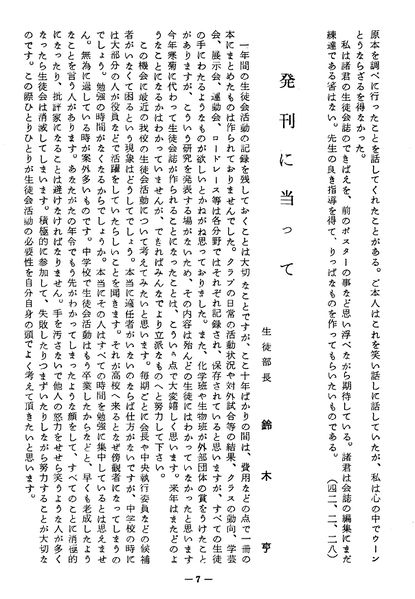 原本を調べに行ったことを話してくれたことがある。ご本人はこれを笑い話しに話していたが、私は心の中でウーン
とうならざるを得なかった。
私は諸君の生徒会誌のできばえを、前のポスターの事など思い浮べながら期待している。諸君は会誌の編集にまだ
練達である筈はない。先生の良き指導を得て、りっぱなものを作ってもらいたいものである。
(四二、二、二八)
発刊に当って
生徒部長 鈴木亨
一年間の生徒会活動の記録を残しておくことは大切なことですが、ここ十年ばかりの間は、費用などの点で一冊の
本にまとめたものは作られておりませんでした。クラブの日常の活動状況や対外試合等の結果、クラスの動向、学芸
会、展示会、運動会、ロードレース等は各分野ではそれぞれ記録され、保存されていると思いますが、すべての生徒
の手にわたるようなものが欲しいとかねがね思っておりました。また、化学班や生物班が外部団体の賞をうけたこと
がありますが、こういう研究を発表する場がないため、その内容は殆んどの生徒にはわかっていなかったと思います
今年寒菊に代わって生徒会誌が作られることになったことは、こういう点で大変嬉しく思います。来年はまたどのよ
うなことになるかはわかっていませんが、できればみんなでより立派なものへと努力して下さい。
この機会に最近の我校の生徒会活動について考えてみたいと思います。毎期ごとに会長や中央執行委員などの候補
者がいなくて困るという現象はどうしてでしょう。本当に適任者がいないのならば仕方がないですが、中学校の時に
は大部分の人が役員などで活躍をしていたらしいことを聞きます。それが高校へ来るとなぜ傍観者になってしまうの
でしょう。勉強の時間がなくなるからでしょうか。本当にその人はすべての時間を勉強に集中しているとは思えませ
ん。無為に過している時が案外多いものです。中学校で生徒会活動はもう卒業したからなどと、早くも老成したよう
なことを言う人があります。あなたがたの年令でもう先がわかってしまったような顔をして、すべてのことに消極的
になったり、批評家になることは避けなければなりません。手を汚さないで他人の努力をせせら笑うような人が多く
なったら生徒会は消滅してしまいます。積極的に参加して、失敗したりつまずいたりしながら努力することが大切な
のです。この際ひとりひとりが生徒会活動の必要性を自分自身の頭でよく考えて頂きたいと思います。
—7—